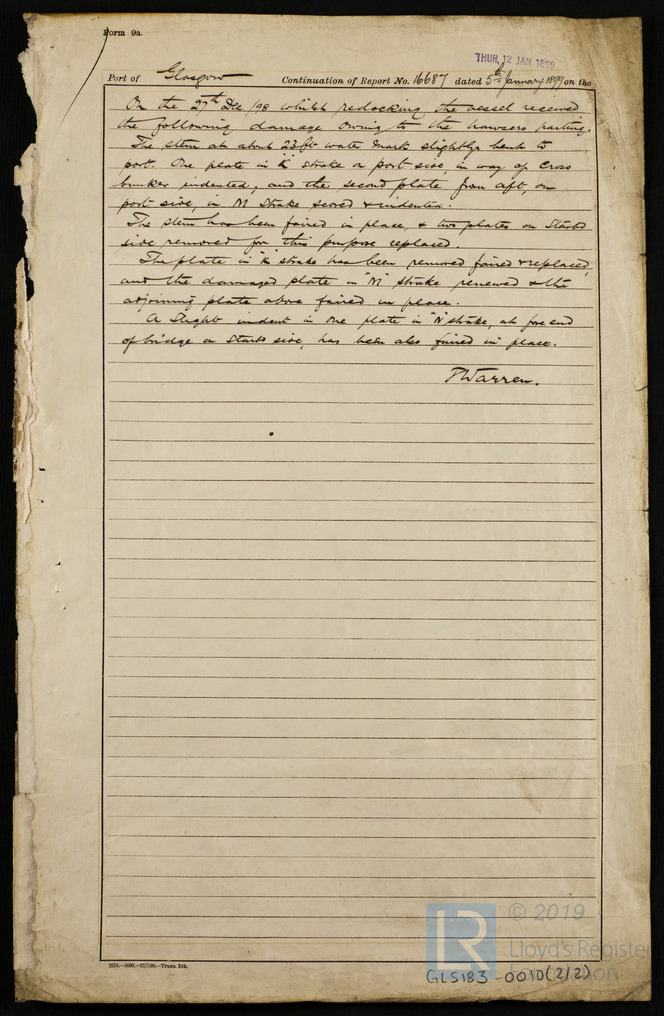 Form 9a.
THUR. 12 JAN 1899
Port of Glasgow Continuation of Report No. 16687 dated 5th January 1899 on the
On the 27th Dec /98 whilst redocking the vessel received
the following damage owing to the hawsers parting.
The stem at about 23 ft water mark slightly bent to
port. One plate in "K" strake on port side, in way of Cross
bunker indented, and the second plate from aft, on
port side, in M strake scored & indented.
The stem has been faired in place, & two plates on Starbd
side removed for this purpose replaced.
The plate in "K" strake has been removed faired & replaced,
and the damaged plate in "M" strake renewed & the
adjoining plate above faired in place.
A slight indent in one plate in "N" strake, at fore end
of bridge on Starbd side, has been also faired in place.
PWarren.
Trans. Ink.
© 2019
LR
Lloyd's Register
GLS183-0010(2/2)